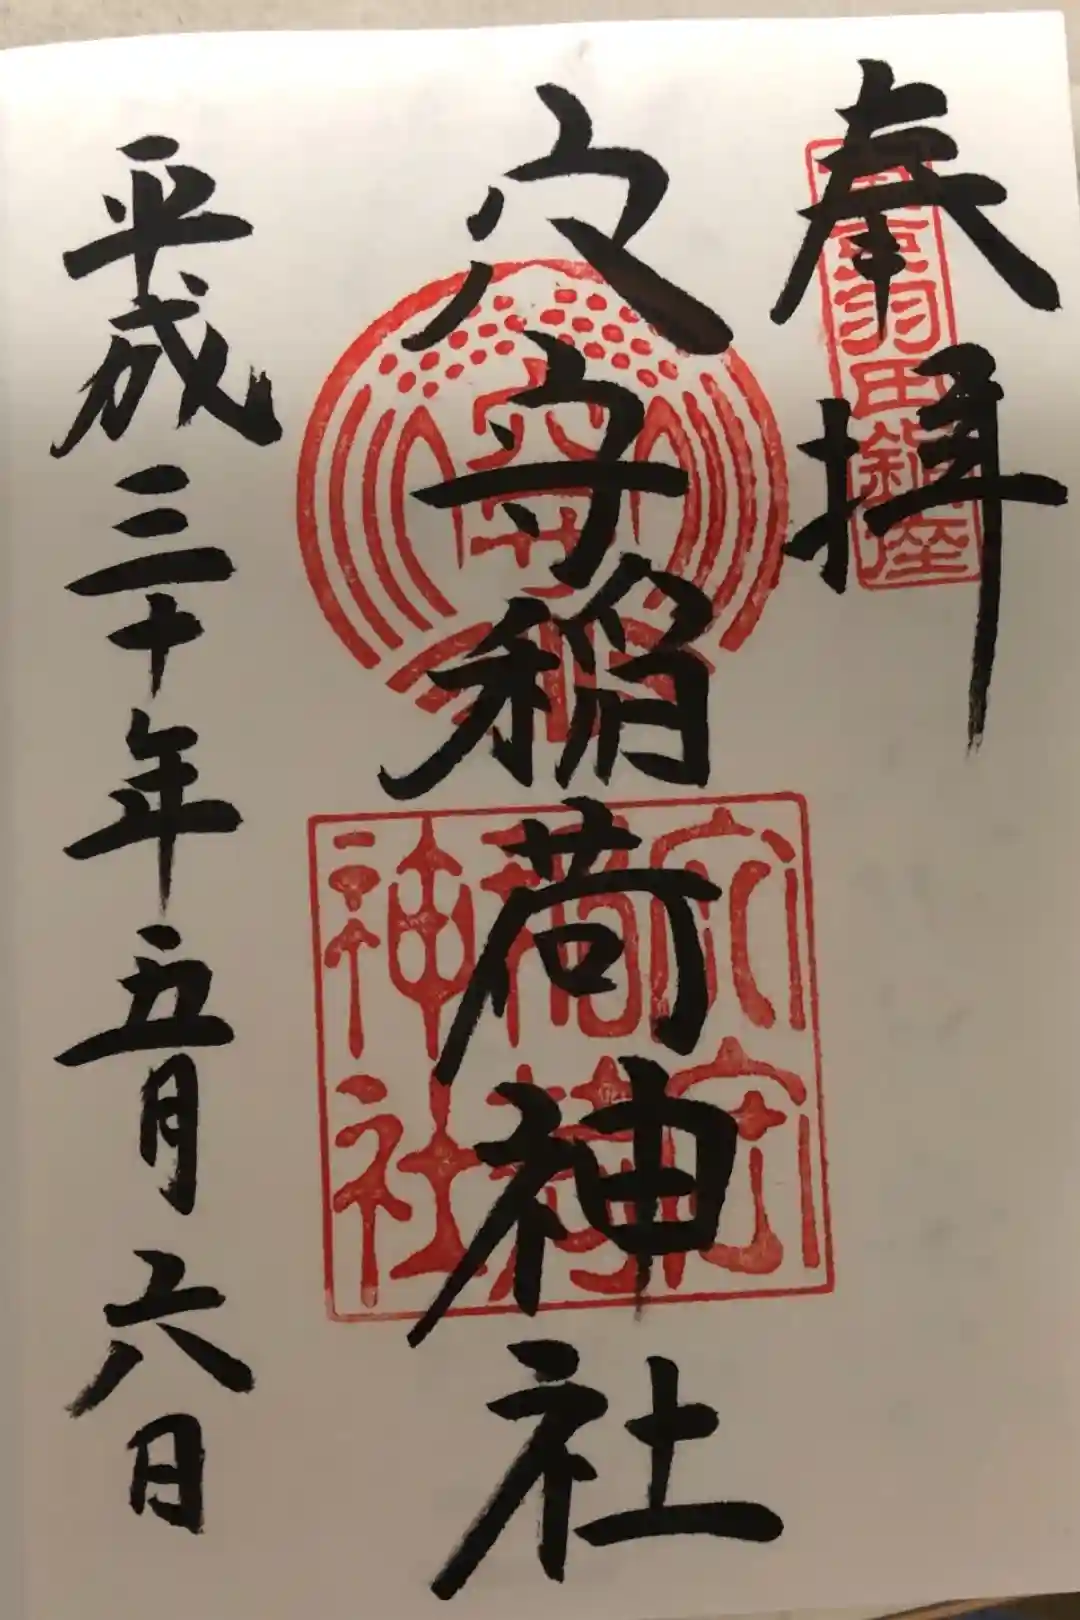 奉拝
東京羽田鎮座
穴守稲荷神社
穴守
稲荷
神社
平成三十年五月六日